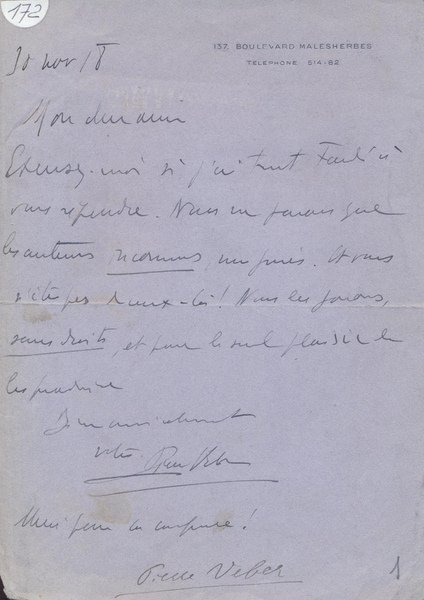 172
137, BOULEVARD MALESHERBES
TÉLÉPHONE 514-82
30 nov 18
Mon cher ami
Excusez-moi si j'ai tant tardé à
vous répondre. Nous ne jouons que
les auteurs inconnus,. Et vous
n'êtes pas de ceux-là ! Nous les jouons,
sans droits, et pour le seul plaisir de
les produire
Bien amicalement
votre Pierre Veber
Merci pour la
Pierre Veber
1